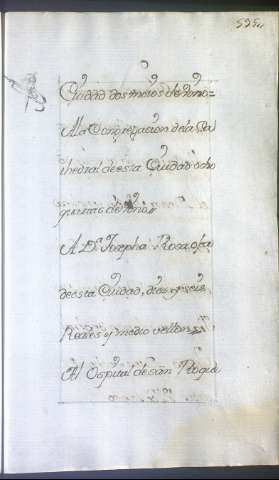 595
Ciudad dos meros de Pano=
A la Congregacion de la Ca
thedral de esta Ciudad ocho
quartas de Pano
A D.ª Josepha Rosa, ofa
de esta Ciudad, diez y seis
Reales y medio vellon
Al Ospital de San Roque